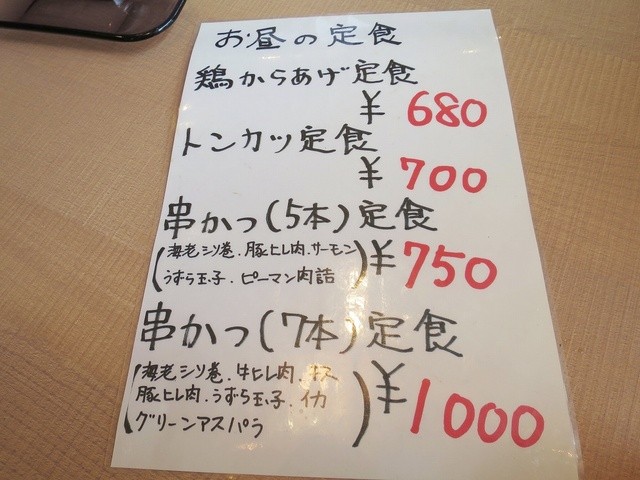 お昼の定食
鶏からあげ定食
¥680
トンカツ定食
¥700
串かつ(5本)定食
(海老シソ巻、豚ヒレ肉、サーモン
うずら玉子、ピーマン肉詰)
¥750
串かつ(7本)定食
(海老シソ巻、牛ヒレ肉、キス
豚ヒレ肉、うずら玉子、イカ
グリーンアスパラ)
¥1000